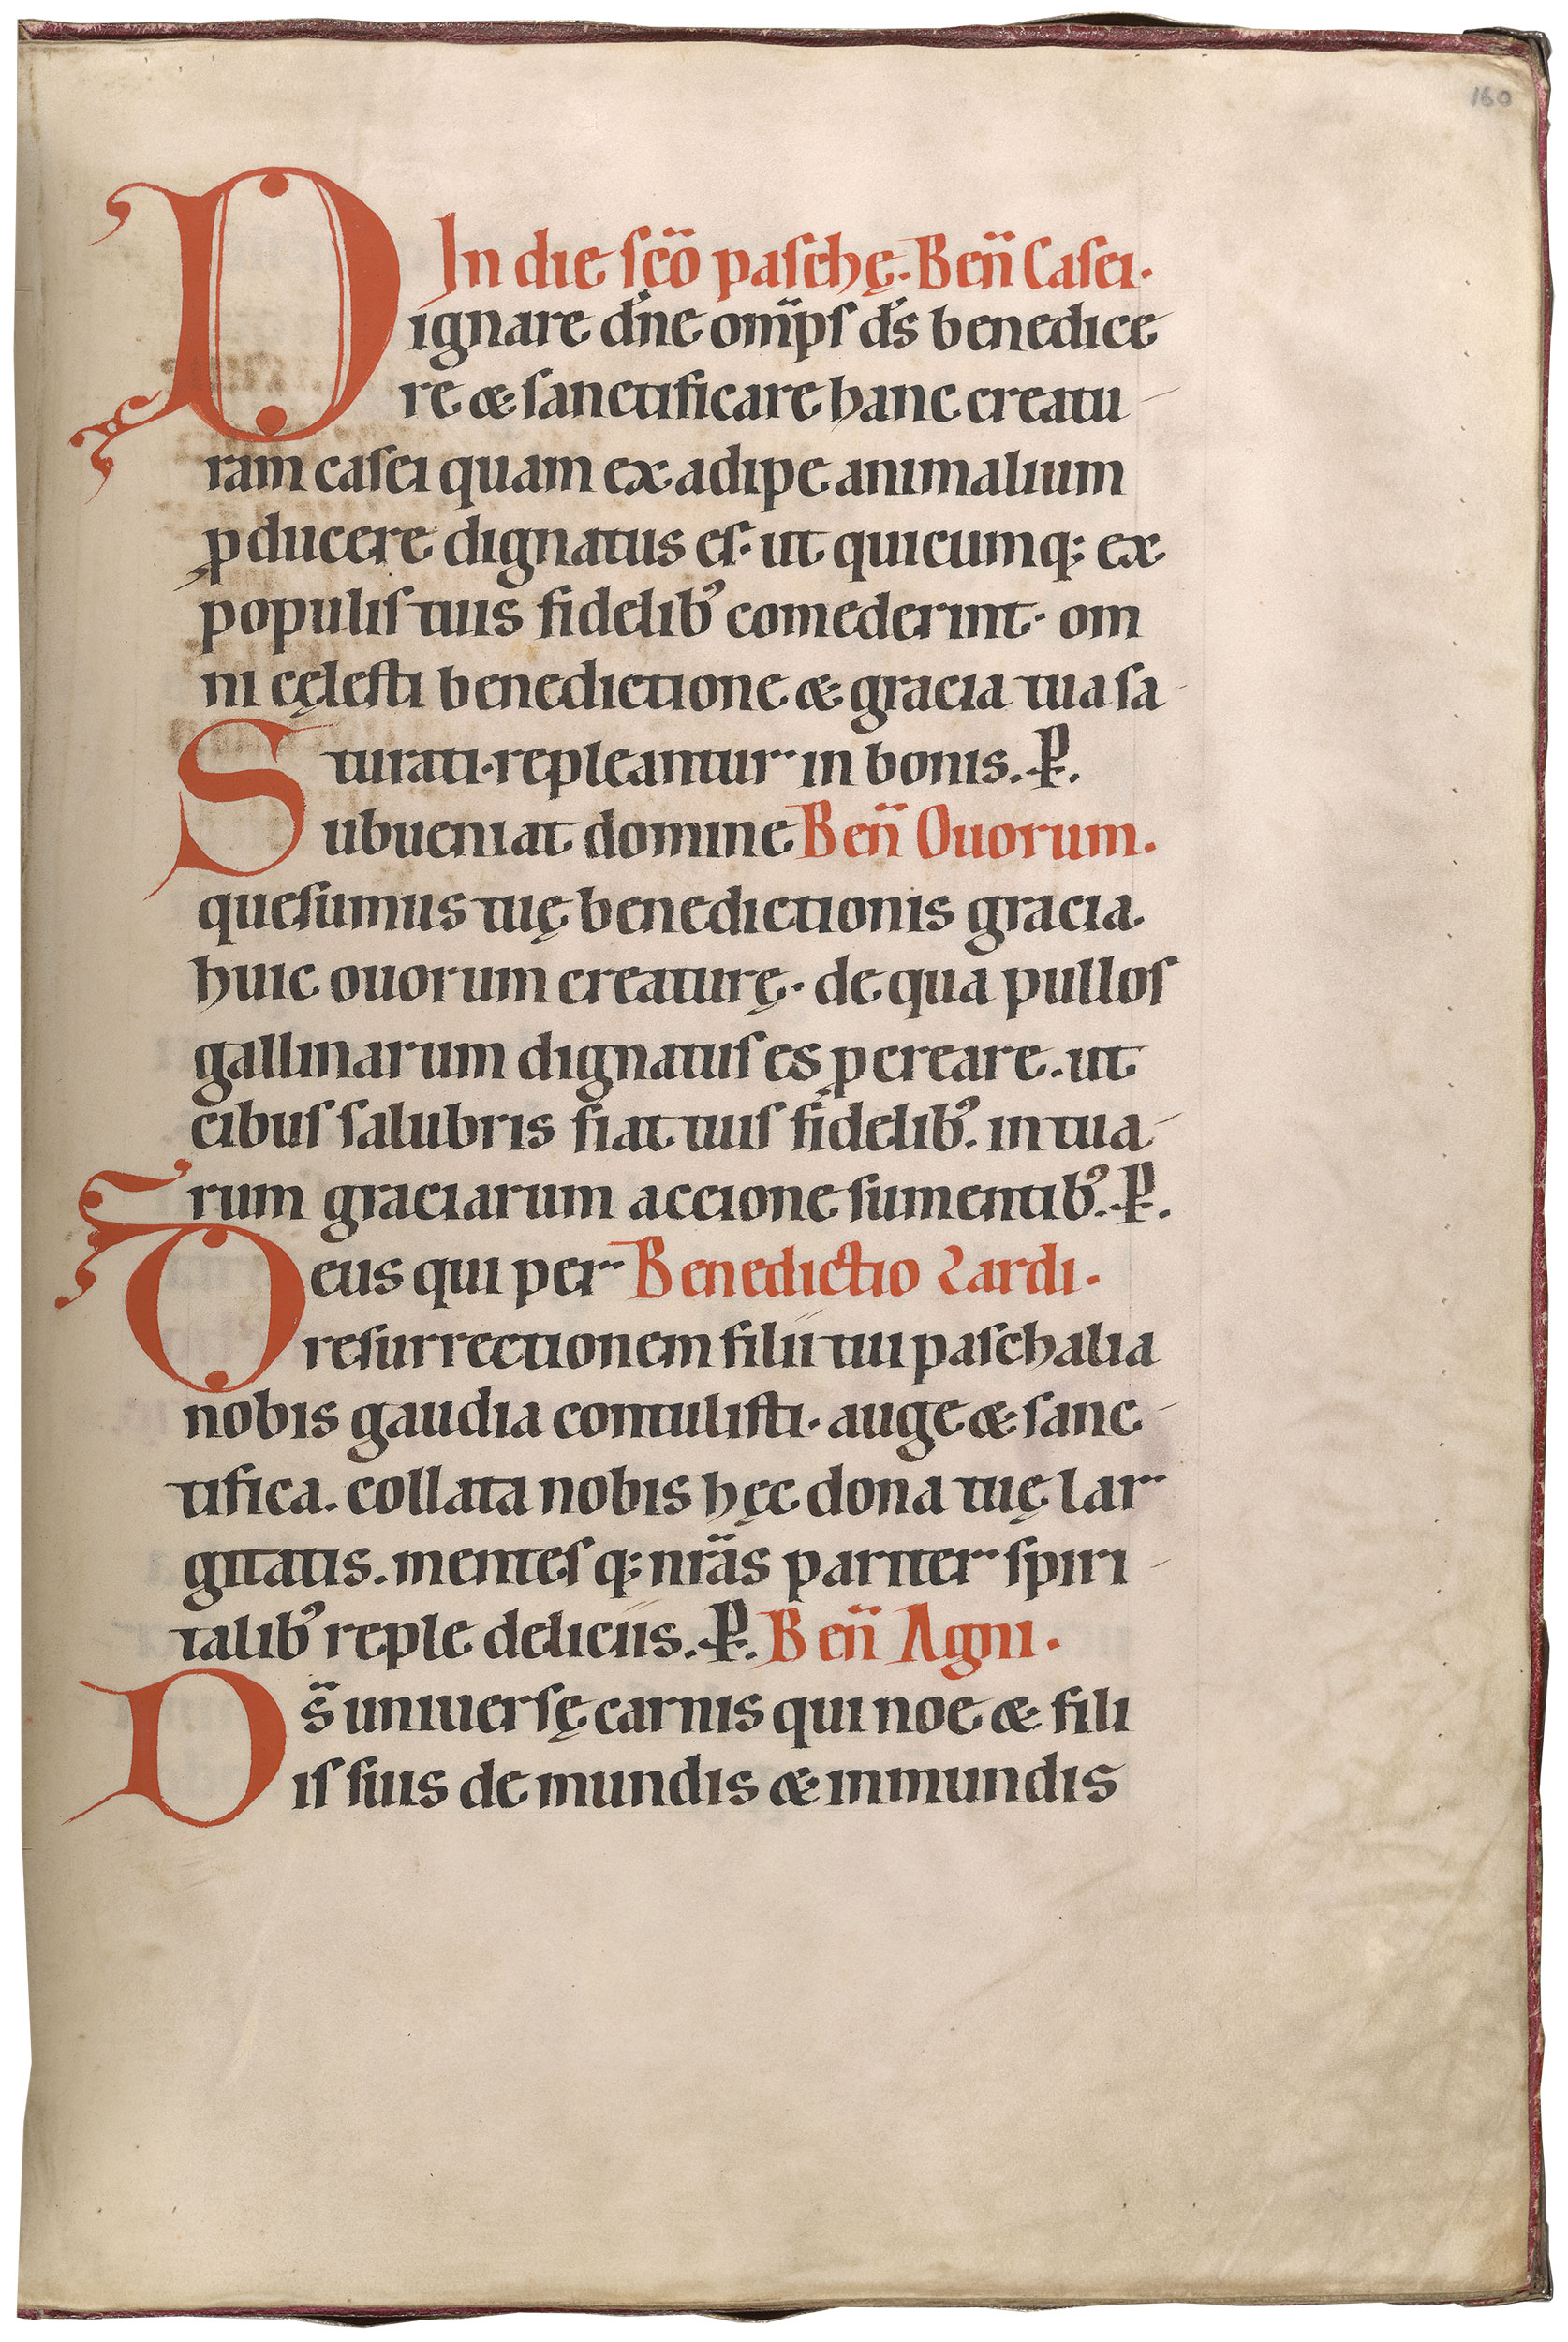 160
In die sc̈o paschę. Ben̈ Casei.
Dignare dn̄e om̄ps ds̄ benedice
re & sanctificare hanc creatu
ram casei quam ex adipe animalium
ꝓducere dignatus es. ut quicumq; ex
populis tuis fidelibꝰ comederint. om
ni cęlesti benedictione & gracia tua sa
turati. repleantur in bonis. P̵.
Subueniat domine Ben̈ Ouorum.
quesumus tuę benedictionis gracia
huic ouorum creaturę. de qua pullos
gallinarum dignatus es ꝓcreare. ut
cibus salubris fiat tuis fidelibꝰ. in tua
rum graciarum accione sumentibꝰ. P̵.
Deus qui per Benedictio Lardi.
resurrectionem filii tui paschalia
nobis gaudia contulisti. auge & sanc
tifica. collata nobis hęc dona tuę lar
gitatis. mentesq; nr̈as pariter spiri
talibꝰ reple deliciis. P̵. Ben̈ Agni.
Ds̈ uniuersę carnis qui noe & fili
is suis de mundis & inmundis